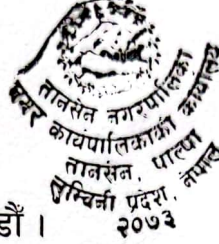 तानसेन नगरपालिका
नगर कार्यपालिकाको कार्यालय
तानसेन, पाल्पा
लुम्बिनी प्रदेश, नेपाल
२०७३
डौं ।